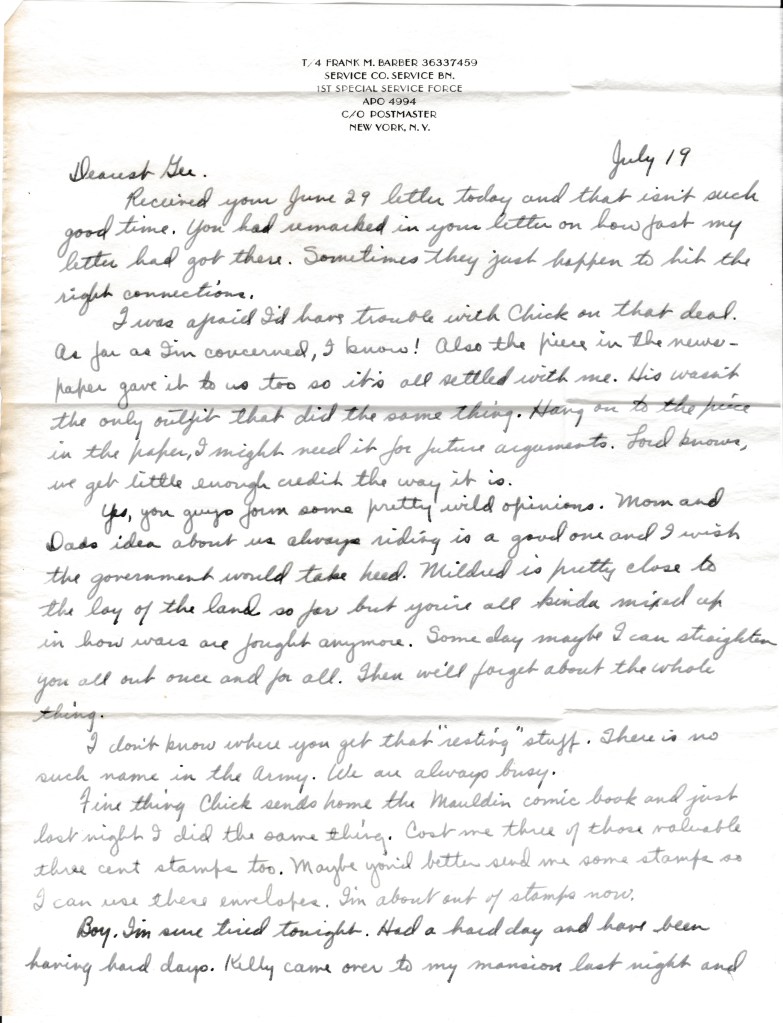 T/4 FRANK M. BARBER 36337459
SERVICE CO. SERVICE BN.
1ST SPECIAL SERVICE FORCE
APO 4994
C/O POSTMASTER
NEW YORK, N. Y.
July 19
Dearest Gee.
Received your June 29 letter today and that isn't such
good time. You had remarked in your letter on how fast my
letter had got there. Sometimes they just happen to hit the
right connections.
I was afraid I'd have trouble with Chick on that deal.
As far as I'm concerned, I know! Also the piece in the news-
paper gave it to us too so it's all settled with me. His wasn't
the only outfit that did the same thing. Hang on to the piece
in the paper, I might need it for future arguments. Lord knows,
we get little enough credit the way it is.
Yes, you guys form some pretty wild opinions. Mom and
Dads idea about us always riding is a good one and I wish
the government would take heed. Mildred is pretty close to
the lay of the land so far but you're all kinda mixed up
in how wars are fought anymore. Some day maybe I can straighten
you all out once and for all. Then we'll forget about the whole
thing.
I don't know where you get that "resting" stuff. There is no
such name in the Army. We are always busy.
Fine thing Chick sends home the Mauldin comic book and just
last night I did the same thing. Cost me three of those valuable
three cent stamps too. Maybe you'd better send me some stamps so
I can use these envelopes. I'm about out of stamps now.
Boy. I'm sure tired tonight. Had a hard day and have been
having hard days. Kelly came over to my mansion last night and